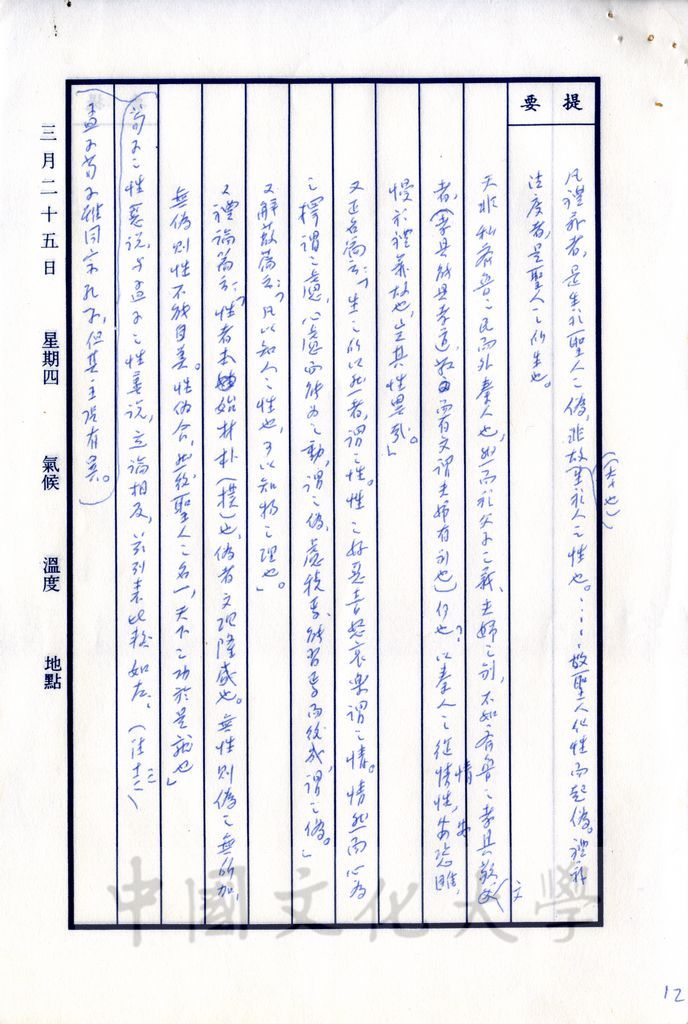 提要
凡禮義者，是生於聖人之偽，非故生於人之性也。……故聖人化性而起偽。禮義
（本也）
法度者，是聖人之所生也。
天非私齊魯之民而外秦人也，然而於父子之義，夫婦之別，不如齊魯之孝具敬文
者，（孝具能具孝道，敬而有文謂夫婦有別也）何也？以秦人之從情性，安恣睢，
慢於禮義故也，豈其性異哉。」
又正名篇云：「生之所以然者，謂之性。性之好惡喜怒哀樂謂之情。情然而心為
之擇謂之慮，心慮而能為之動，謂之偽，慮積焉、能習焉而後成，謂之偽。」
又解蔽篇云：「凡以知人之性也，可以知物之理也」。
又禮論篇云：「性者本始材朴（樸）也，偽者文理隆盛也。無性則偽之無所加，
無偽則性不能自美。性偽合，然後聖人之名一，天下之功於是就也」
荀子之性惡說，與孟子之性善說，立論相反，茲列表比較如左，（註十三）
孟子荀子雖同宗孔子，但其主張有異。）
三月二十五日 星期四 氣候 溫度 地點
中國文化大學
12